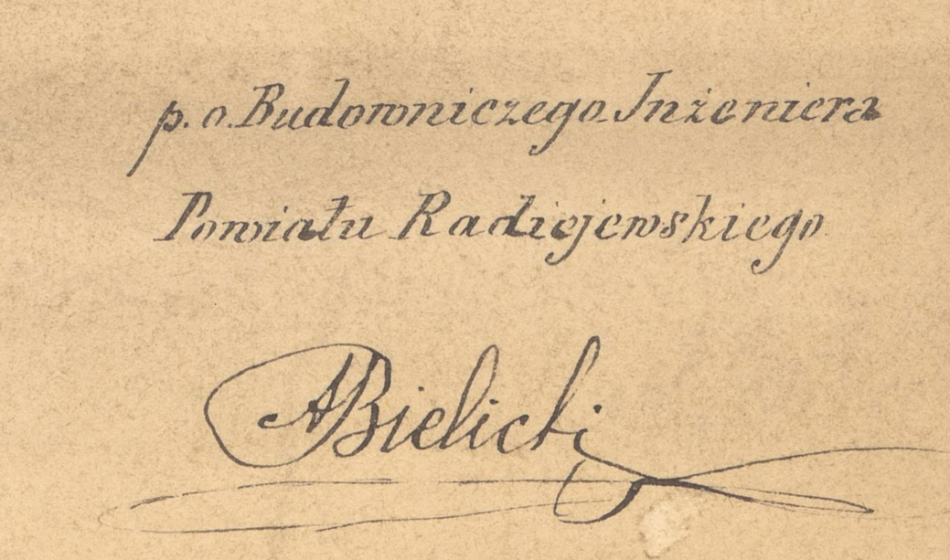 p. o. Budowniczego Inżeniera
Powiatu Radiejewskiego
ABielicki